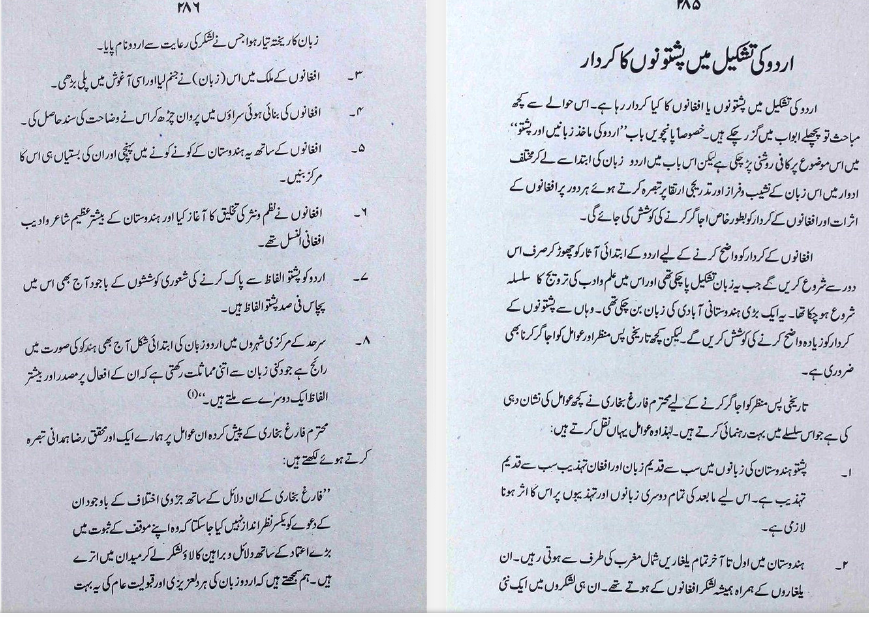 ۲۸۵
اردو کی تشکیل میں پشتونوں کا کردار
اردو کی تشکیل میں پشتونوں یا افغانوں کا کیا کردار رہا ہے۔ اس حوالے سے کچھ
مباحث تو پچھلے ابواب میں گزر چکے ہیں۔ خصوصاً پانچویں باب ”اردو کی ماخذ زبانیں اور پشتو“
میں اس موضوع پر کافی روشنی پڑ چکی ہے لیکن اس باب میں اردو زبان کی ابتدا سے لے کر مختلف
ادوار میں اس زبان کے نشیب و فراز اور تدریجی ارتقا پر تبصرہ کرتے ہوئے ہر دور پر افغانوں کے
اثرات اور افغانوں کے کردار کو بطور خاص اجاگر کرنے کی کوشش کی جائے گی۔
افغانوں کے کردار کو واضح کرنے کے لیے اردو کے ابتدائی آثار کو چھوڑ کر صرف اس
دور سے شروع کریں گے جب یہ زبان تشکیل پا چکی تھی اور اس میں علم و ادب کی ترویج کا سلسلہ
شروع ہو چکا تھا۔ یہ ایک بڑی ہندوستانی آبادی کی زبان بن چکی تھی۔ وہاں سے پشتونوں کے
کردار کو زیادہ واضح کرنے کی کوشش کریں گے۔ لیکن کچھ تاریخی پس منظر اور عوامل کو اجاگر کرنا بھی
ضروری ہے۔
تاریخی پس منظر کو اجاگر کرنے کے لیے محترم فارغ بخاری نے کچھ عوامل کی نشان دہی
کی ہے جو اس سلسلے میں بہت رہنمائی کرتے ہیں۔ لہٰذا وہ عوامل یہاں نقل کرتے ہیں:
۱۔ پشتو ہندوستان کی زبانوں میں سب سے قدیم زبان اور افغان تہذیب سب سے قدیم
تہذیب ہے۔ اس لیے مابعد کی تمام دوسری زبانوں اور تہذیبوں پر اس کا اثر ہونا
لازمی ہے۔
۲۔ ہندوستان میں اول تا آخر تمام یلغاریں شمال مغرب کی طرف سے ہوتی رہیں۔ ان
یلغاروں کے ہمراہ ہمیشہ لشکر افغانوں کے ہوتے تھے۔ ان ہی لشکروں میں ایک نئی
۲۸۶
زبان کا ریختہ تیار ہوا جس نے لشکر کی رعایت سے اردو نام پایا۔
۳۔ افغانوں کے ملک میں اس (زبان) نے جنم لیا اور اسی آغوش میں پلی بڑھی۔
۴۔ افغانوں کی بنائی ہوئی سراؤں میں پروان چڑھ کر اس نے وضاحت کی سند حاصل کی۔
۵۔ افغانوں کے ساتھ یہ ہندوستان کے کونے کونے میں پہنچی اور ان کی بستیاں ہی اس کا
مرکز بنیں۔
۶۔ افغانوں نے نظم و نثر کی تخلیق کا آغاز کیا اور ہندوستان کے بیشتر عظیم شاعر و ادیب
افغانی النسل تھے۔
۷۔ اردو کو پشتو الفاظ سے پاک کرنے کی شعوری کوششوں کے باوجود آج بھی اس میں
پچاس فی صد پشتو الفاظ ہیں۔
۸۔ سرحد کے مرکزی شہروں میں اردو زبان کی ابتدائی شکل آج بھی ہندکو کی صورت میں
رائج ہے جو دکنی زبان سے اتنی مماثلت رکھتی ہے کہ ان کے افعال پر مصدر اور بیشتر
الفاظ ایک دوسرے سے ملتے ہیں۔“(۱)
محترم فارغ بخاری کے پیش کردہ ان عوامل پر ہمارے ایک اور محقق رضا ہمدانی تبصرہ
کرتے ہوئے لکھتے ہیں:
”فارغ بخاری کے ان دلائل کے ساتھ جزوی اختلاف کے باوجود ان
کے دعوے کو یکسر نظر انداز نہیں کیا جا سکتا کہ وہ اپنے موقف کے ثبوت میں
بڑے اعتماد کے ساتھ دلائل و براہین کا لاؤ لشکر لے کر میدان میں اترے
ہیں۔ ہم سمجھتے ہیں کہ اردو زبان کی ہر دلعزیزی اور قبولیت عام کی یہ بہت